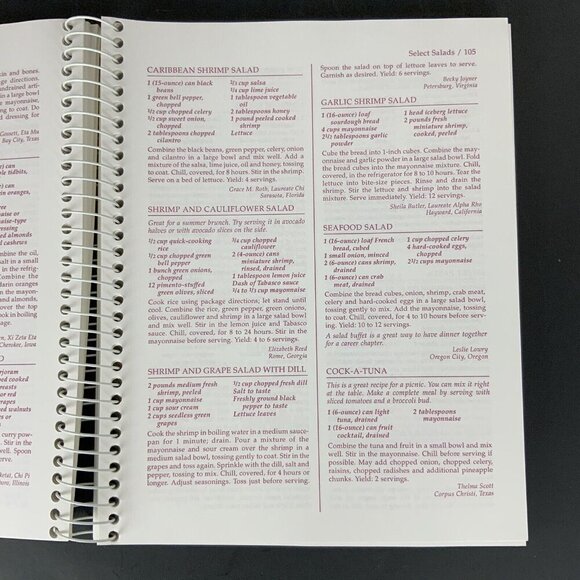 kin and bones.
in a large bowl
mayonnaise,
to coat. Do
d dressing for
Bay City, Texas
can
le tidbits,
in oranges,
naise or
naise-type
ressing
d almonds
cashews
the oil,
salt in a small
in the refrig-
Combine the
darin oranges
mayonnaise,
and almonds,
over the top
Cherokee, Iowa
rjoram
ped cooked
breasts
or red
grapes
ed walnuts
or
curry pow-
Stir in the
well. Spoon
serve.
Select Salads / 105
CARIBBEAN SHRIMP SALAD
1 (15-ounce) can black
beans
1 green bell pepper,
chopped
½ cup chopped celery
½ cup sweet onion,
chopped
2 tablespoons chopped
cilantro
⅔ cup salsa
¼ cup lime juice
1 tablespoon vegetable
oil
2 tablespoons honey
1 pound peeled cooked
shrimp
Lettuce
Combine the black beans, green pepper, celery, onion
and cilantro in a large bowl and mix well. Add a
mixture of the salsa, lime juice, oil and honey, tossing
to coat. Chill, covered, for 8 hours. Stir in the shrimp.
Serve on a bed of lettuce. Yield: 4 servings.
Grace M. Roth, Laureate Chi
Sarasota, Florida
SHRIMP AND CAULIFLOWER SALAD
Great for a summer brunch. Try serving it in avocado
halves or with avocado slices on the side.
½ cup quick-cooking
rice
½ cup chopped green
bell pepper
1 bunch green onions,
chopped
12 pimento-stuffed
green olives, sliced
¾ cup chopped
cauliflower
2 (4-ounce) cans
miniature shrimp,
rinsed, drained
1 tablespoon lemon juice
Dash of Tabasco sauce
¼ to ⅓ cup mayonnaise
Cook rice using package directions; let stand until
cool. Combine the rice, green pepper, green onions,
olives, cauliflower and shrimp in a large salad bowl
and mix well. Stir in the lemon juice and Tabasco
sauce. Chill, covered, for 8 to 24 hours. Stir in the
mayonnaise before serving. Yield: 4 to 6 servings.
Elizabeth Reed
Rome, Georgia
SHRIMP AND GRAPE SALAD WITH DILL
2 pounds medium fresh
shrimp, peeled
1 cup mayonnaise
1 cup sour cream
2 cups seedless green
grapes
½ cup chopped fresh dill
Salt to taste
Freshly ground black
pepper to taste
Lettuce leaves
Cook the shrimp in boiling water in a medium sauce-
pan for 1 minute; drain. Pour a mixture of the
mayonnaise and sour cream over the shrimp in a
medium salad bowl, tossing gently to coat. Stir in the
grapes and toss again. Sprinkle with the dill, salt and
pepper, tossing to mix. Chill, covered, for 4 hours or
longer. Adjust seasonings. Toss just before serving.
Spoon the salad on top of lettuce leaves to serve.
Garnish as desired. Yield: 6 servings.
Becky Joyner
Petersburg, Virginia
GARLIC SHRIMP SALAD
1 (16-ounce) loaf
sourdough bread
4 cups mayonnaise
2½ tablespoons garlic
powder
1 head iceberg lettuce
2 pounds fresh
miniature shrimp,
cooked, peeled
Cube the bread into 1-inch cubes. Combine the may-
onnaise and garlic powder in a large salad bowl. Fold
the bread cubes into the mayonnaise mixture. Chill,
covered, in the refrigerator for 8 to 10 hours. Tear the
lettuce into bite-size pieces. Rinse and drain the
shrimp. Stir the lettuce and shrimp into the salad
mixture. Serve immediately. Yield: 12 servings.
Sheila Butler, Laureate Alpha Rho
Hayward, California
SEAFOOD SALAD
1 (16-ounce) loaf French
bread, cubed
1 small onion, minced
2 (6-ounce) cans shrimp,
drained
1 (6-ounce) can crab
meat, drained
1 cup chopped celery
4 hard-cooked eggs,
chopped
2½ cups mayonnaise
Combine the bread cubes, onion, shrimp, crab meat,
celery and hard-cooked eggs in a large salad bowl,
tossing gently to mix. Add the mayonnaise, tossing
to coat. Chill, covered, for 4 to 10 hours before serv-
ing. Yield: 10 to 12 servings.
A salad buffet is a great way to have dinner together
for a career chapter.
Leslie Lowry
Oregon City, Oregon
COCK-A-TUNA
This is a great recipe for a picnic. You can mix it right
at the table. Make a complete meal by serving with
sliced tomatoes and a broccoli bud.
1 (6-ounce) can light
tuna, drained
1 (16-ounce) can fruit
cocktail, drained
2 tablespoons
mayonnaise
Combine the tuna and fruit in a small bowl and mix
well. Stir in the mayonnaise. Chill before serving if
possible. May add chopped onion, chopped celery,
raisins, chopped radishes and additional pineapple
chunks. Yield: 2 servings.
Thelma Scott
Corpus Christi, Texas